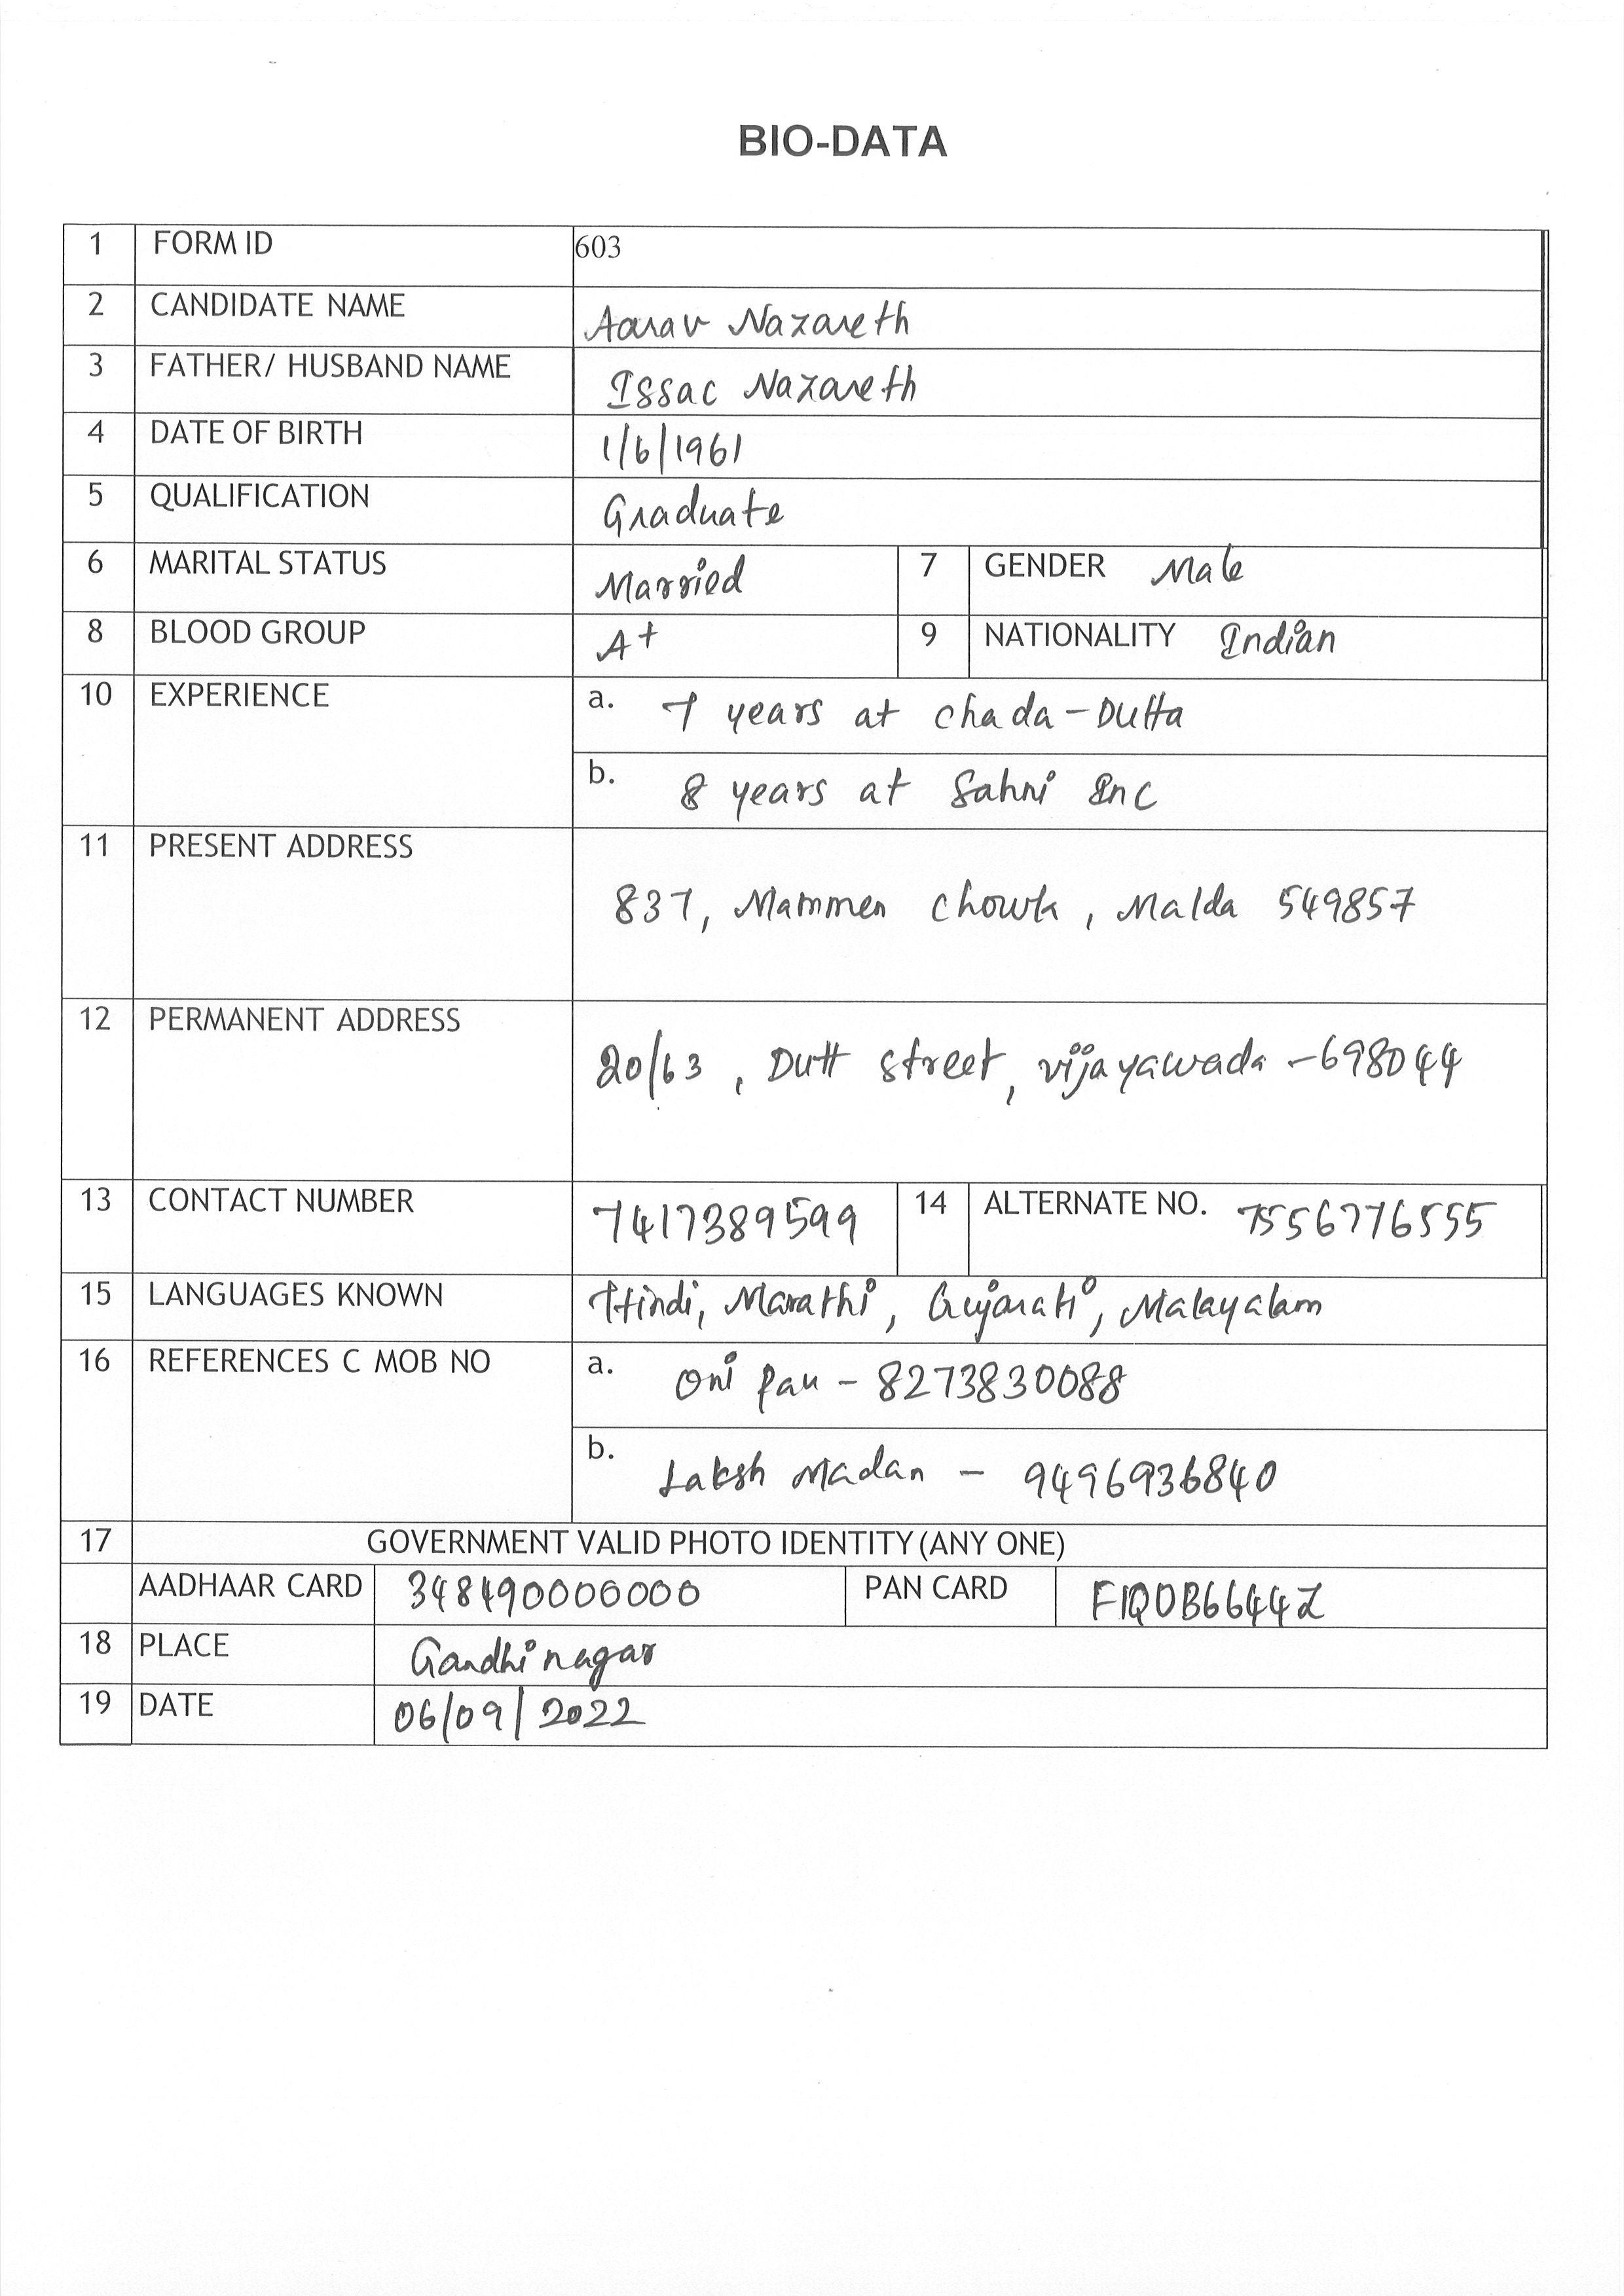 BIO-DATA
1 FORM ID 603
2 CANDIDATE NAME Aarav Nazareth
3 FATHER/ HUSBAND NAME Issac Nazareth
4 DATE OF BIRTH 1/6/1961
5 QUALIFICATION Graduate
6 MARITAL STATUS Married 7 GENDER Male
8 BLOOD GROUP A+ 9 NATIONALITY Indian
10 EXPERIENCE a. 7 years at Chada-Dutta
b. 8 years at Sahni Inc
11 PRESENT ADDRESS 837, Mammen Chowk, Malda 549857
12 PERMANENT ADDRESS 20/63, Dutt street, vijayawada -698044
13 CONTACT NUMBER 7417389599 14 ALTERNATE NO. 7556776555
15 LANGUAGES KNOWN Hindi, Marathi, Gujarati, Malayalam
16 REFERENCES C MOB NO a. Oni - 8273830088
b. Laksh Madan - 9496936840
17 GOVERNMENT VALID PHOTO IDENTITY (ANY ONE)
AADHAAR CARD 348490000000 PAN CARD FIQOB6644Z
18 PLACE Gandhinagar
19 DATE 06/09/2022